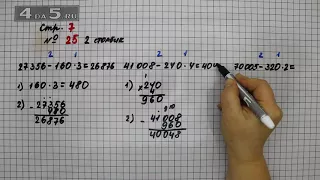 4da5.ru
Стр. 7
№ 25 2 столбик
2 1
27356 - 160 · 3 = 26876
2 1
41008 - 240 · 4 = 404
2 1
70005 - 320 · 2 =
1) 160 · 3 = 480
1) × 240
4
960
2) - 27356
480
26876
2) - 41008
960
40048